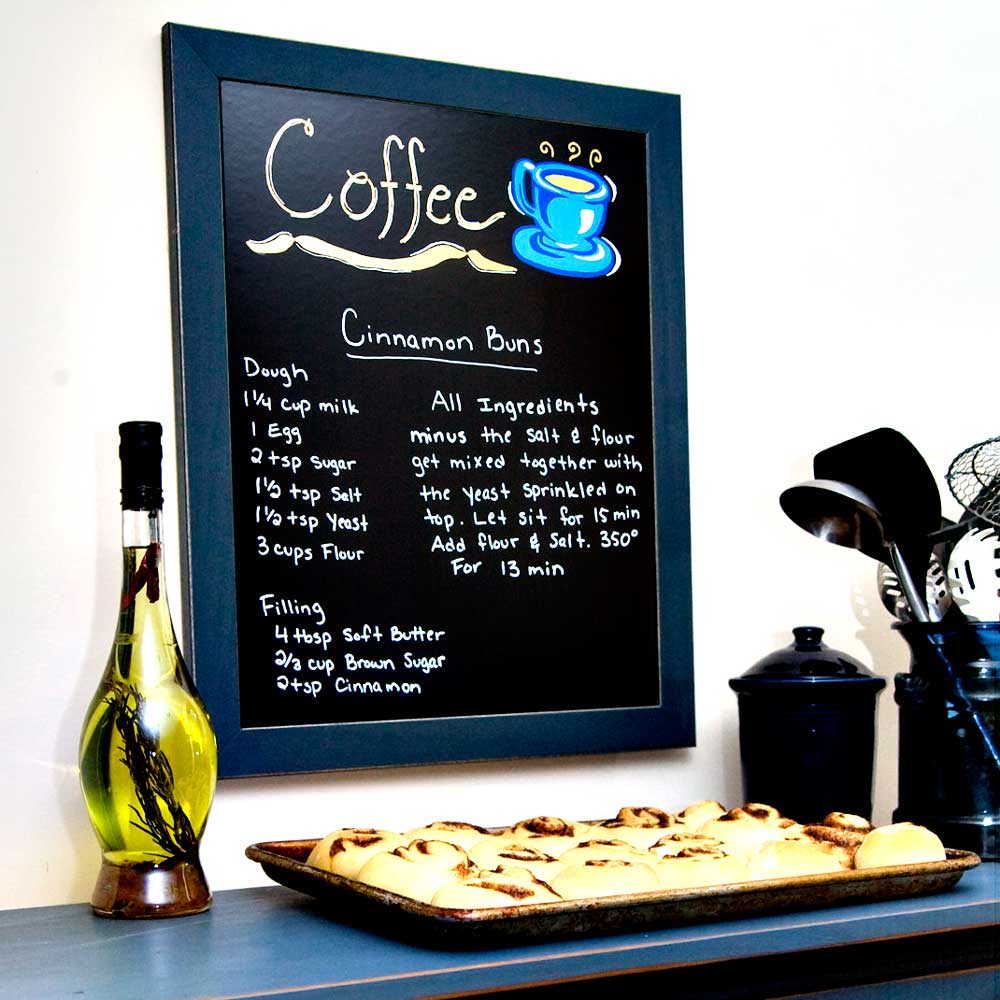 Coffee
Cinnamon Buns
Dough
1 1/4 cup milk
1 Egg
2 tsp Sugar
1 1/2 tsp Salt
1 1/2 tsp Yeast
3 cups Flour
All Ingredients
minus the salt & flour
get mixed together with
the yeast sprinkled on
top. Let sit for 15 min
Add flour & Salt. 350°
For 13 min
Filling
4 tbsp Soft Butter
2/3 cup Brown Sugar
2 tsp Cinnamon